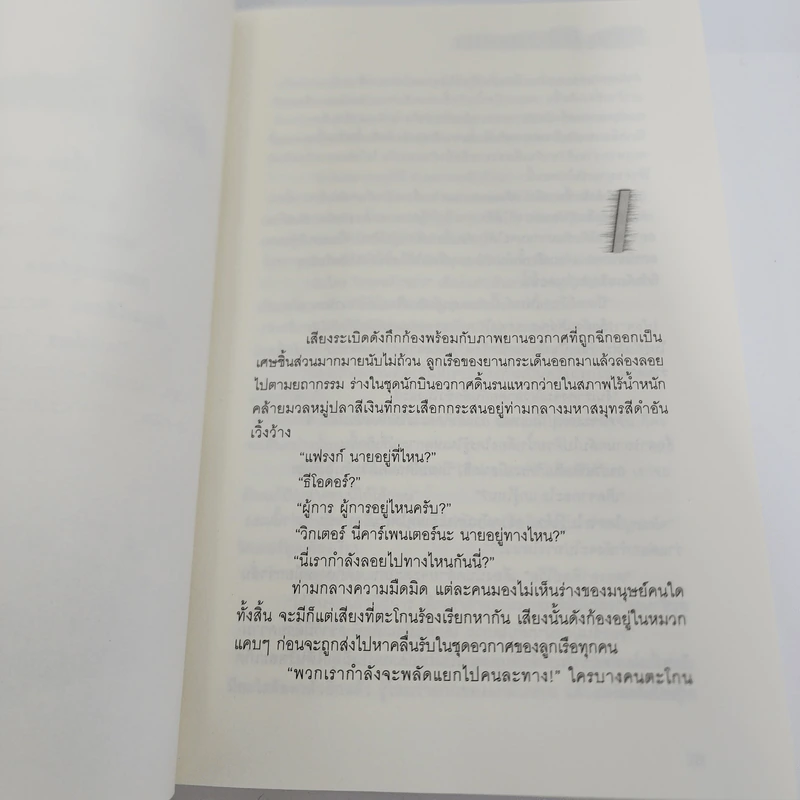 เสียงระเบิดดังกึกก้องพร้อมกับภาพยานอวกาศที่ถูกฉีกออกเป็น
เศษชิ้นส่วนมากมายนับไม่ถ้วน ลูกเรือของยานกระเด็นออกมาแล้วล่องลอย
ไปตามยถากรรม ร่างในชุดนักบินอวกาศดิ้นรนแหวกว่ายในสภาพไร้น้ำหนัก
คล้ายมวลหมู่ปลาสีเงินที่กระเสือกกระสนอยู่ท่ามกลางมหาสมุทรสีดำอัน
เวิ้งว้าง
“แฟรงก์ นายอยู่ที่ไหน?”
“ธีโอดอร์?”
“ผู้การ ผู้การอยู่ไหนครับ?”
“วิกเตอร์ นี่คาร์เพนเตอร์นะ นายอยู่ทางไหน?”
“นี่เรากำลังลอยไปทางไหนกันนี่?”
ท่ามกลางความมืดมิด แต่ละคนมองไม่เห็นร่างของมนุษย์คนใด
ทั้งสิ้น จะมีก็แต่เสียงที่ตะโกนร้องเรียกหากัน เสียงนั้นดังก้องอยู่ในหมวก
แคบๆ ก่อนจะถูกส่งไปหาคลื่นรับในชุดอวกาศของลูกเรือทุกคน
“พวกเรากำลังจะพลัดแยกไปคนละทาง!” ใครบางคนตะโกน